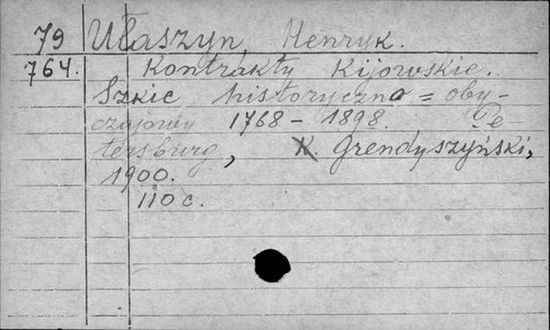 79 Ułaszyn, Henryk.
764. Kontrakty Kijowskie.
Szkic historyczno = oby-
czajowy 1768 - 1898. Pe-
tersburg, K. Grendyszyński,
1900.
110 c.